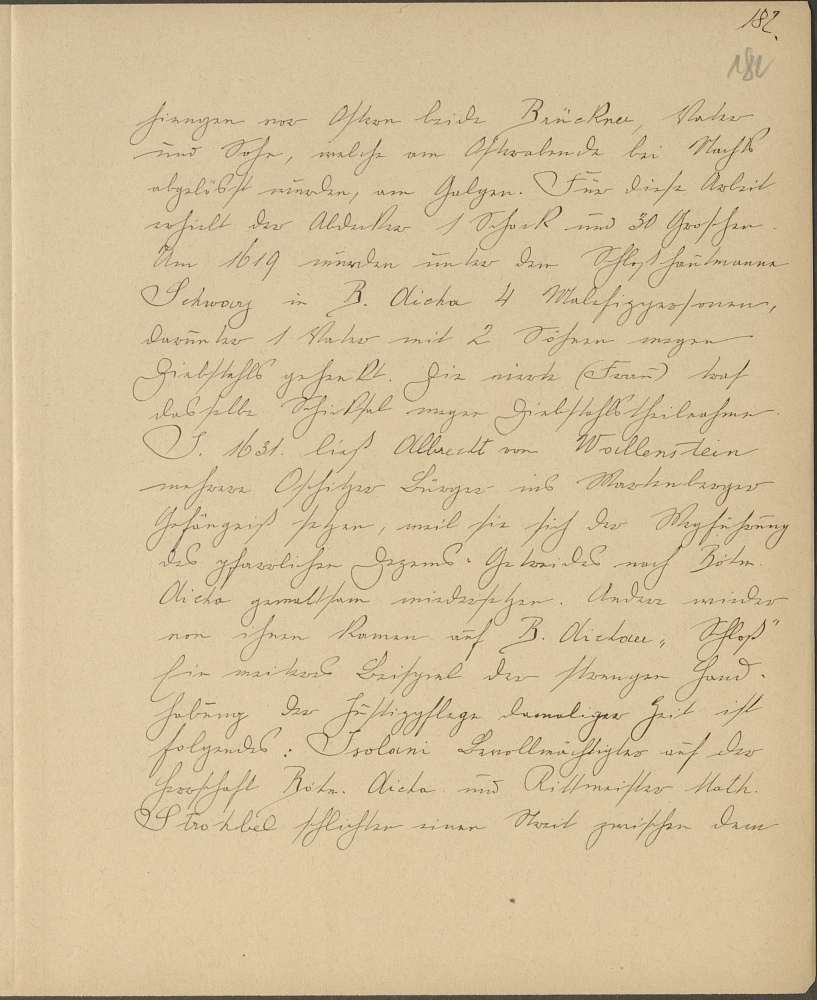 182.
182
hiengen vor Ostern beide Brückner, Vater
und Sohn, welche am Osterabende bei Nachts
abgelöst wurden, am Galgen. Für diese Arbeit
erhielt der Abdecker 1 Schock und 30 Groschen.
Am 1619 wurden unter dem Schloßhautmanne
Schwarz in B. Aicha 4 Malefizpersonen,
darunter 1 Vater mit 2 Söhnen wegen
Diebstahls gehenkt. Die vierte (Frau) traf
dasselbe Schicksal wegen Diebstahlstheilnahme.
J. 1631. ließ Albrecht von Wallenstein
mehrere Oschitzer Bürger ins Wartenberger
Gefängniß setzen, weil sie sich der Wegführung
des pfarrlichen Dezems-Getreides nach Böhm.
Aicha gewaltsam widersetzen. Andere wieder
von ihnen kamen auf B. Aichaer „Schloß"
Ein weiteres Beispiel der strengen Hand-
habung der Justizpflege damaliger Zeit ist
folgendes: Isolani Bevollmächtigter auf der
Herrschaft Böhm. Aicha und Rittmeister Math.
Strohbel schlichten einen Streit zwischen dem